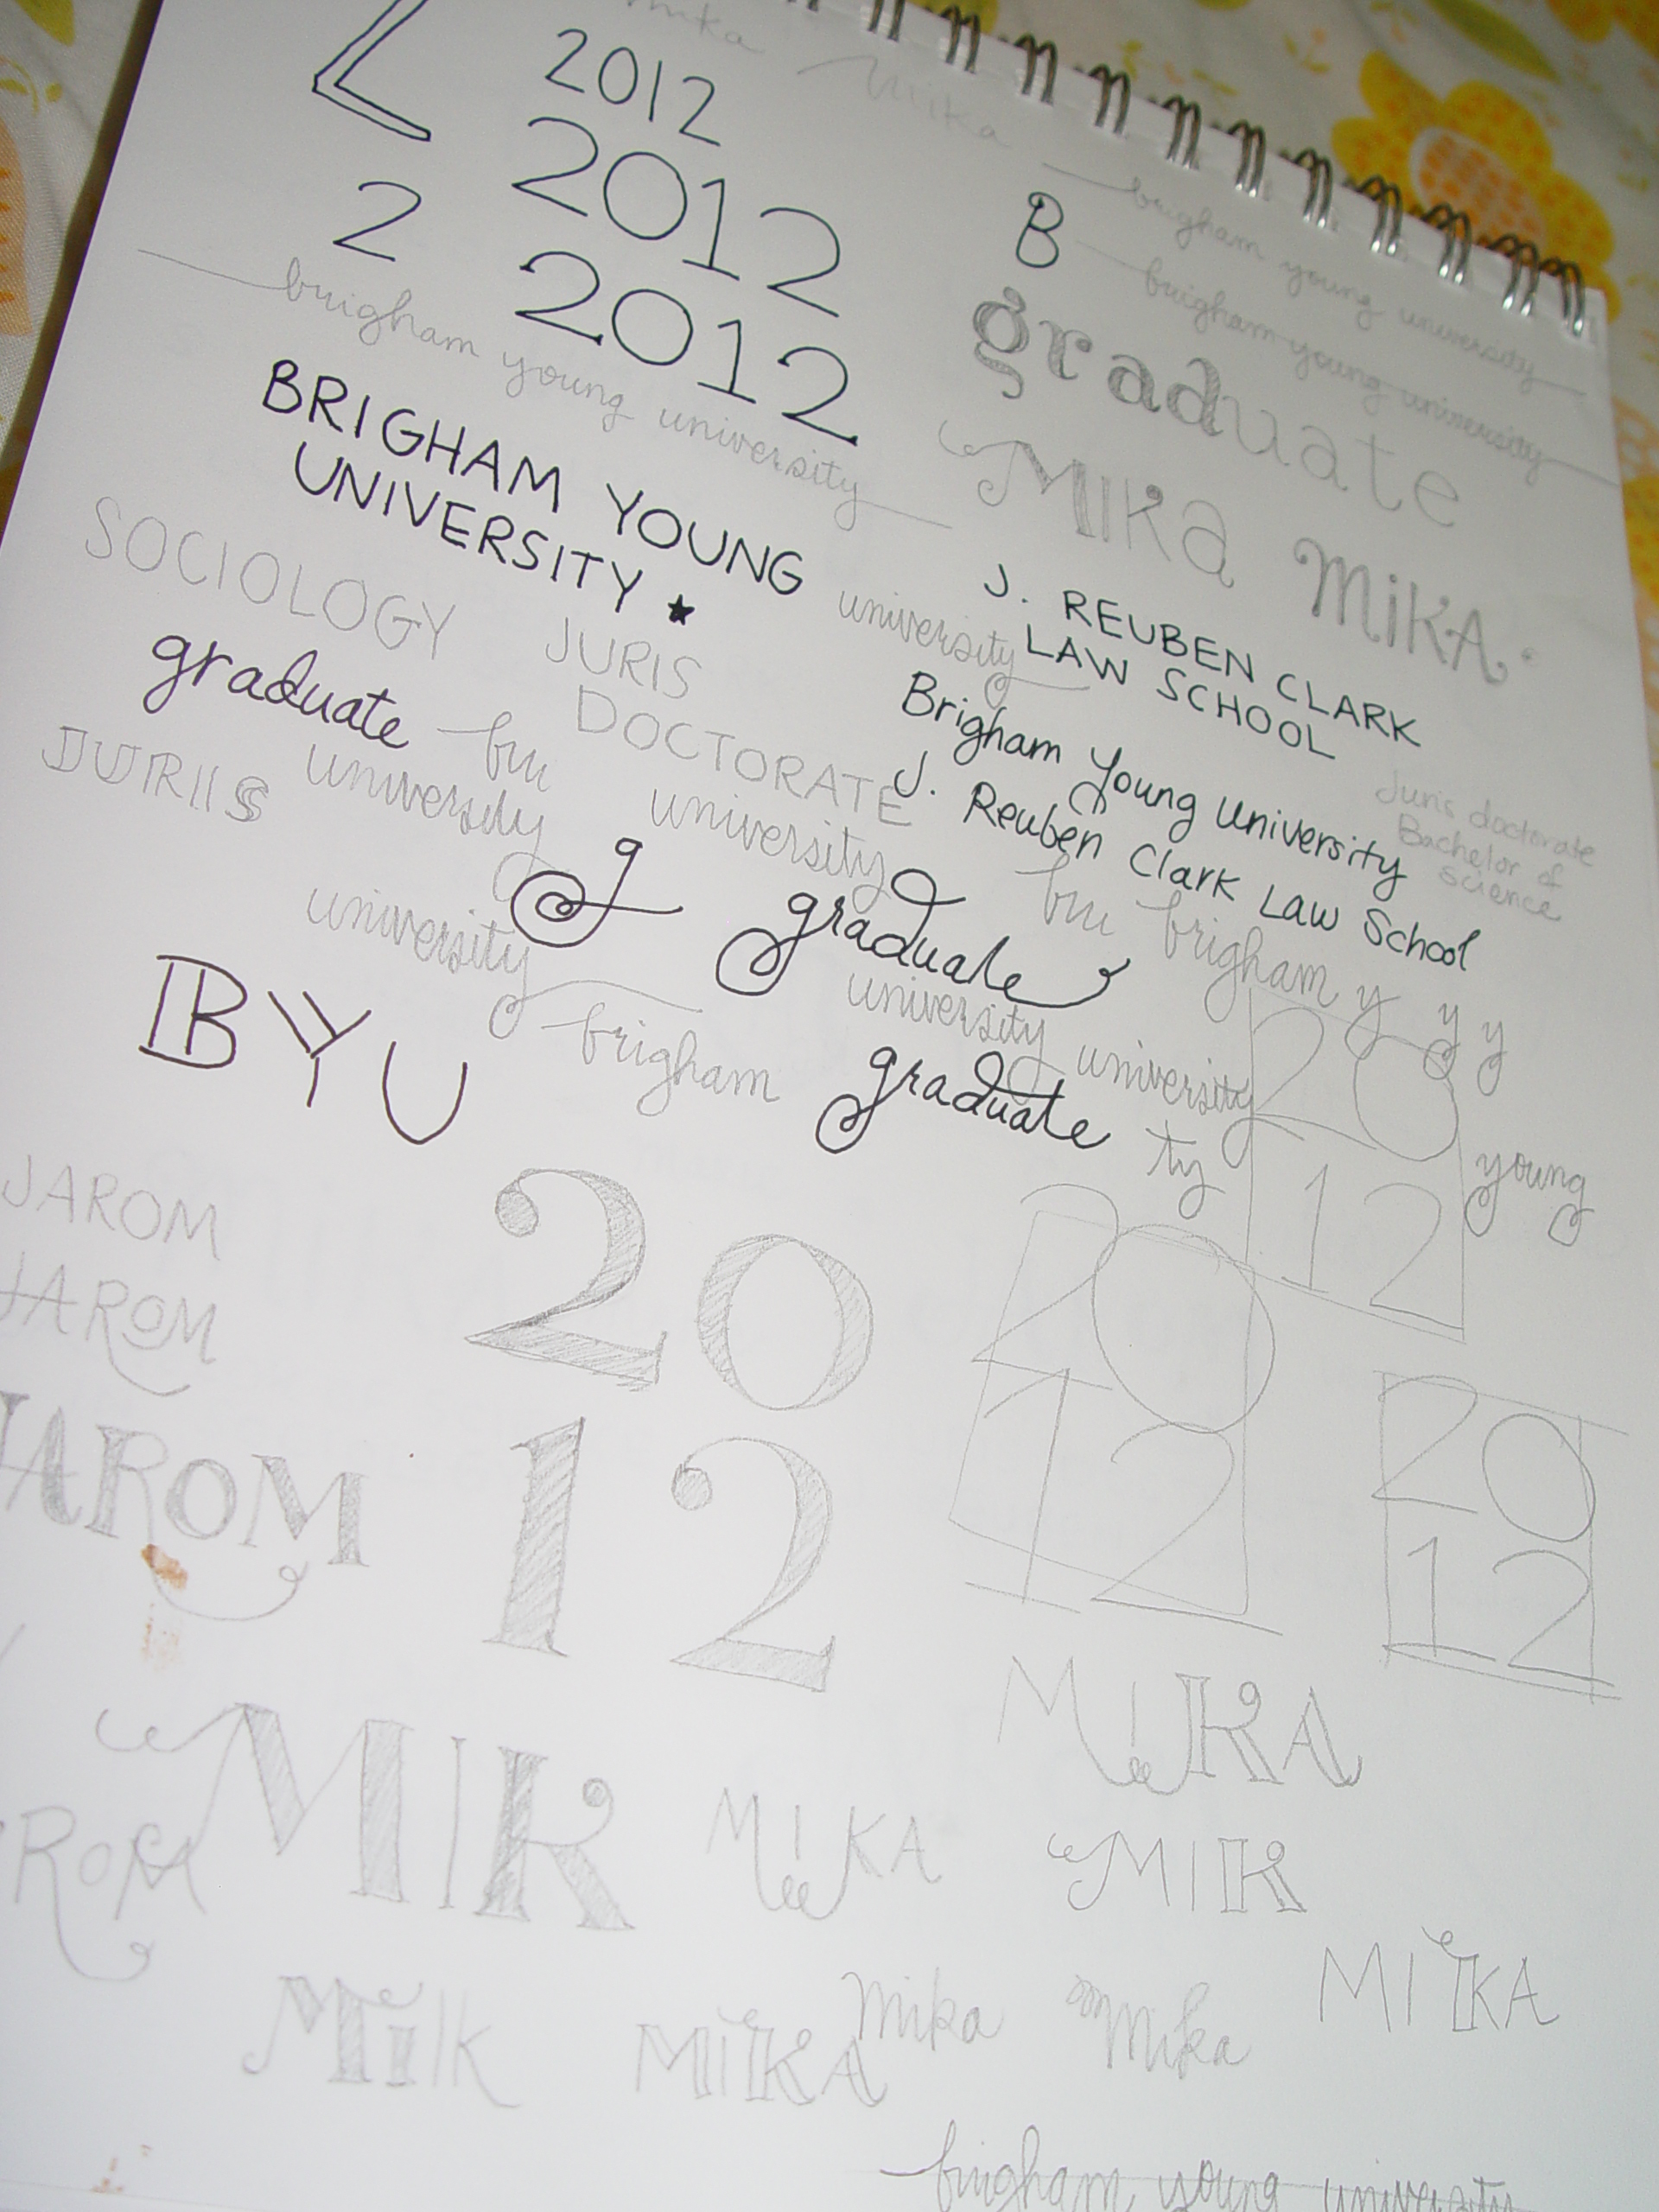 mika
mika
2
2012
2012
2
2012
B
brigham young university
brigham young university
brigham young university
graduate
MIKA MIKA
BRIGHAM YOUNG
UNIVERSITY
university
J. REUBEN CLARK
LAW SCHOOL
SOCIOLOGY
JURIS
DOCTORATE
graduate
Brigham Young University
J. Reuben Clark Law School
Juris doctorate
Bachelor of
Science
JURIS
university
university
g
graduate
brigham y y y
university
BYU
brigham
university
university
graduate
ty
young
20
12
JAROM
JAROM
JAROM
20
12
20
12
20
12
MIKA
MIK
MIKA
MIK
ROM
MIKA
Mik
MIKA
mika
Mika
brigham young university